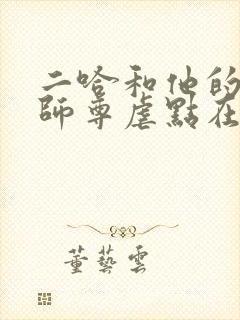 二哈和他的
師尊虐點在
董藝雲